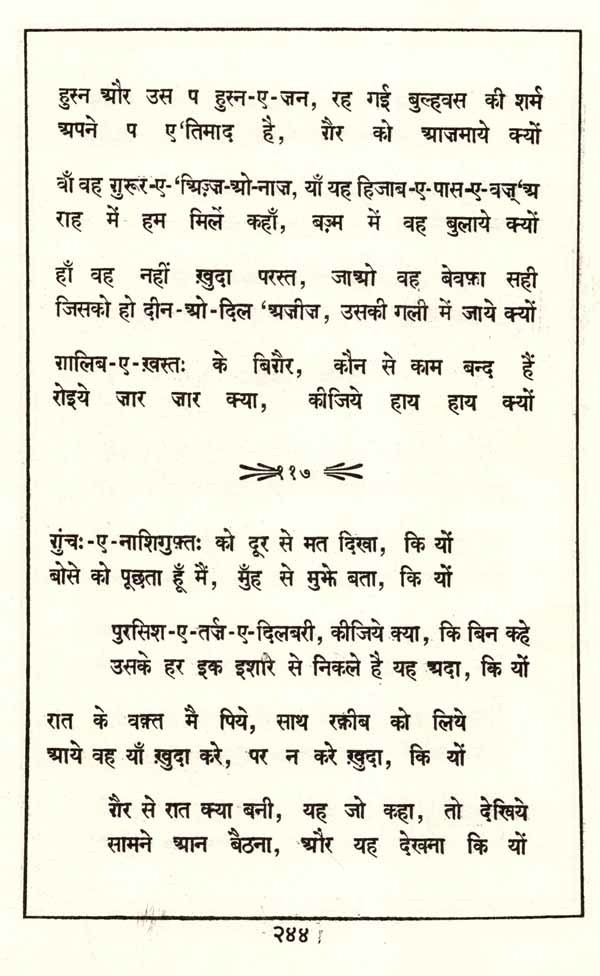 हुस्न और उस प हुस्न-ए-ज़न, रह गई बुल्हवस की शर्म
अपने प ए'तिमाद है, ग़ैर को आज़माये क्यों
वाँ वह ग़ुरूर-ए-'अिज़्ज़-ओ-नाज़, याँ यह हिजाब-ए-पास-ए-वज़्'अ
राह में हम मिलें कहाँ, बज़्म में वह बुलाये क्यों
हाँ वह नहीं ख़ुदा परस्त, जाओ वह बेवफ़ा सही
जिसको हो दीन-ओ-दिल 'अज़ीज़, उसकी गली में जाये क्यों
ग़ालिब-ए-ख़स्तः के बिग़ैर, कौन से काम बन्द हैं
रोइये ज़ार ज़ार क्या, कीजिये हाय हाय क्यों
११७
ग़ुंचः-ए-नाशिगुफ़्तः को दूर से मत दिखा, कि यों
बोसे को पूछता हूँ मैं, मुँह से मुझे बता, कि यों
पुरसिश-ए-तर्ज़-ए-दिलबरी, कीजिये क्या, कि बिन कहे
उसके हर इक इशारे से निकले है यह अदा, कि यों
रात के वक़्त मै पिये, साथ रक़ीब को लिये
आये वह याँ ख़ुदा करे, पर न करे ख़ुदा, कि यों
ग़ैर से रात क्या बनी, यह जो कहा, तो देखिये
सामने आन बैठना, और यह देखना कि यों
२४४